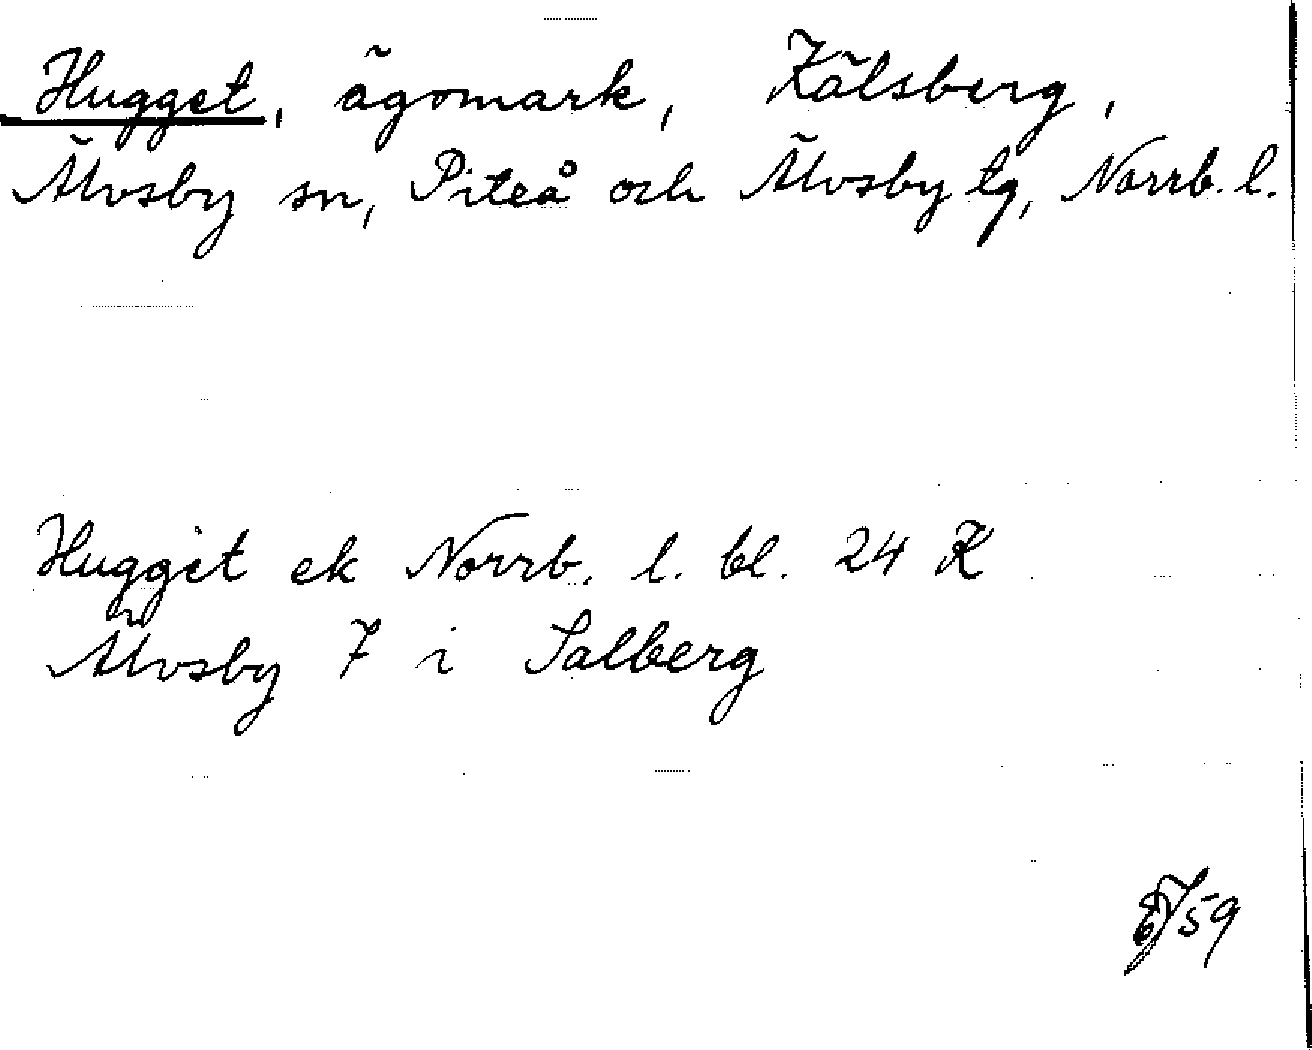 Hugget, ägomark, Kälsberg,
Älvsby sn, Piteå och Älvsby tg, Norrb. l.
Hugget ek Norrb. l. bl. 24 K
Älvsby 7 i Salberg
59